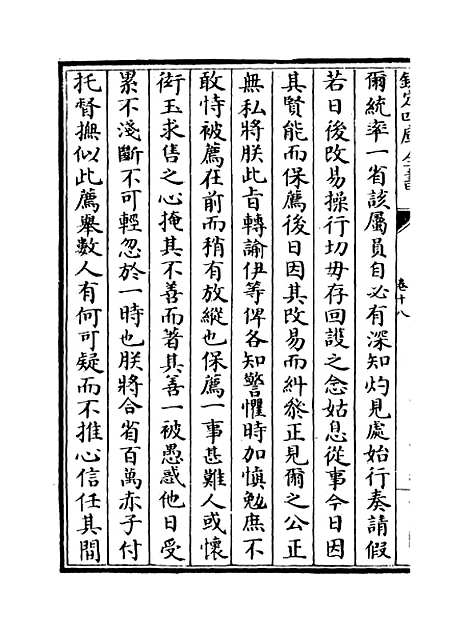 欽定四庫全書
卷十八
爾統率一省該屬員自必有深知灼見處始行奏請假
若日後改易操行切毋存回護之念姑息從事今日因
其賢能而保薦後日因其改易而糾叅正見爾之公正
無私將朕此旨轉諭伊等俾各知警懼時加慎勉庶不
敢恃被薦在前而稍有放縱也保薦一事甚難人或懷
衒玉求售之心掩其不善而著其善一被愚惑他日受
累不淺斷不可輕忽於一時也朕將合省百萬赤子付
托督撫似此薦舉數人有何可疑而不推心信任其間